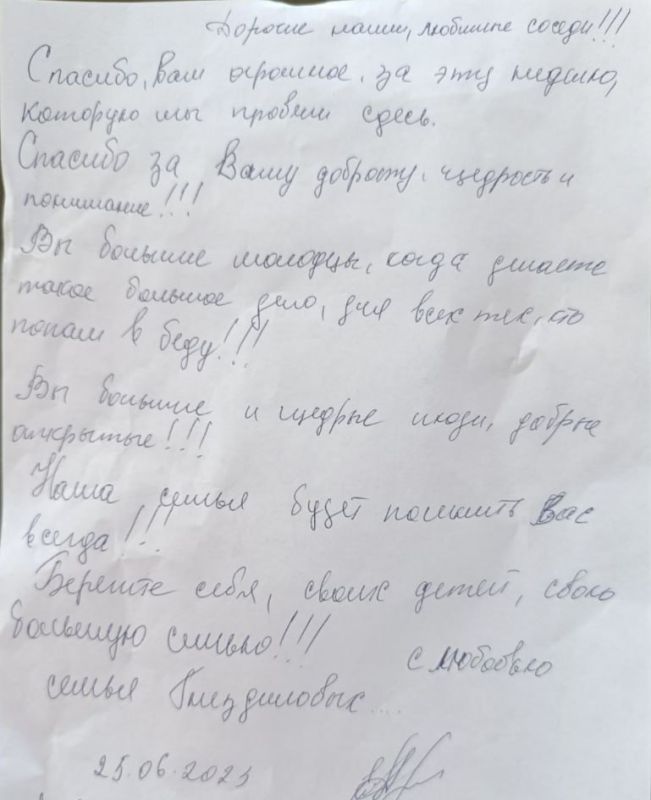 Дорогие наши, любимые соседи!!!
Спасибо, Вам огромное, за эту неделю,
которую мы провели здесь.
Спасибо за Вашу доброту, щедрость и
понимание!!!
Вы большие молодцы, когда делаете
такое большое дело, для всех тех, кто
попал в беду!!!
Вы большие и щедрые люди, добрые
открытые!!!
Наша семья будет помнить Вас
всегда!!!
Берегите себя, своих детей, свою
большую семью!!!
с любовью
семья Гнездиловых....
25.06.2023